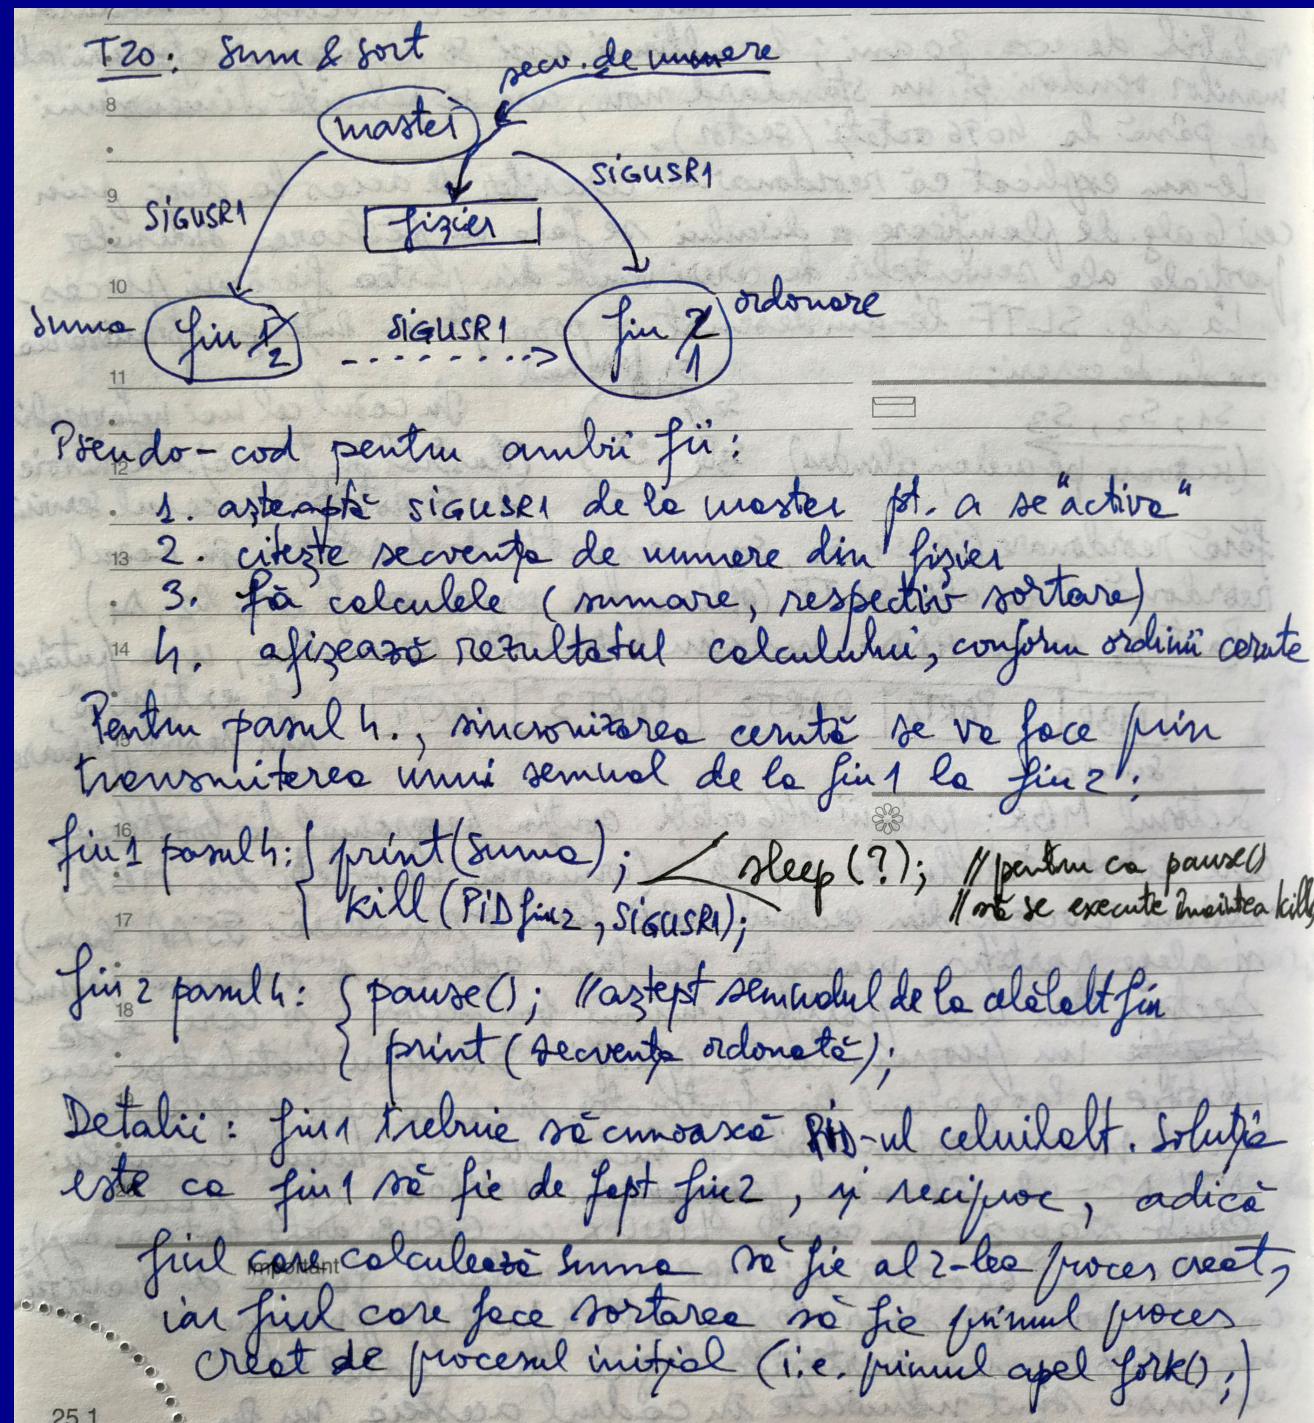 T20: Sum & Sort
secv. de numere
master
SIGUSR1
SIGUSR1
fișier
suma
fiu 1 2
SIGUSR1
fiu 2 1
ordonare
Pseudo-cod pentru ambii fii:
1. așteaptă SIGUSR1 de la master pt. a se "activa"
2. citește secvența de numere din fișier
3. fă calculele (sumare, respectiv sortare)
4. afișează rezultatul calculului, conform ordinii cerute
Pentru pasul 4., sincronizarea cerută se va face prin
transmiterea unui semnal de la fiu1 la fiu2:
fiu1 pasul4: { print(suma); sleep(?); // pentru ca pause()
kill(PIDfiu2, SIGUSR1); // să se execute înaintea kill()
fiu2 pasul4: { pause(); //aștept semnalul de la celălalt fiu
print(secvența ordonată);
Detalii: fiu1 trebuie să cunoască PID-ul celuilalt. Soluția
este ca fiu1 să fie de fapt fiu2, și reciproc, adică
fiul care calculează suma să fie al 2-lea proces creat,
iar fiul care face sortarea să fie primul proces
creat de procesul inițial (i.e. primul apel fork();)
8
9
10
11
12
13
14
15
16
17
18
Important
25.1